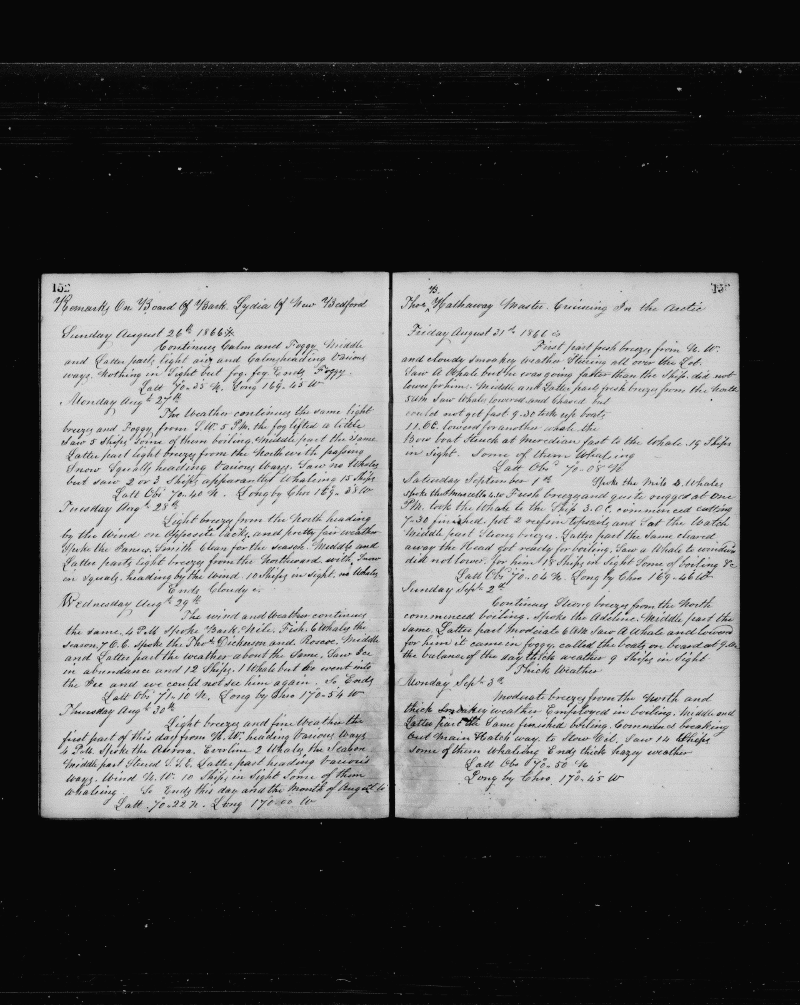 152
Remarks On Board Of Bark Lydia Of New Bedford
Sunday August 26th 1866
Continues Calm and Foggy. Middle
and Latter parts light airs and Calms, heading Various
ways. Nothing in Sight but fog. fog Ends Foggy.
Latt 70-35 N. Long 169-45 W
Monday Augt 27th
The Weather continues the same light
breezes and Foggy from S.W. 5 P.M. the fog lifted a little
Saw 5 Ships Some of them boiling. Middle part the Same
Latter part light breezes from the North with passing
Snow Squalls heading Various Ways. Saw no Whales
but saw 2 or 3 Ships apparently Whaleing 15 Ships
Latt Obs 70-40 N. Long by Chro 169-38 W
Tuesday Augt 28th
Light breezes from the North heading
by the Wind on Opposite tacks, and pretty fair weather
Spoke the Smith Clean for the season. Middle and
Latter parts light breezes from the Northward with Snow
in Squalls. heading by the Wind. 10 Ships in Sight. no Whales
Ends Cloudy
Wednesday Augt 29th
The wind and Weather continues
the same. 4 P.M. Spoke Bark Nile. Fish. 6 Whales the
season, 7 O.C. Spoke the Thos Dickason and Roscoe. Middle
and Latter part the weather about the Same. Saw Ice
in abundance and 12 Ships. 1 Whale but he went into
the Ice and we could not see him again. So Ends
Latt Obs 71-10 N. Long by Chro 170-54 W
Thursday Augt 30th
Light breezes and fine Weather the
first part of this day from N.W. heading Various Ways
4 P.M. Spoke the Aurora. Eveline 2 Whales the Season
Middle part Stered S.S.E. Latter part heading Various
Ways. Wind N.W. 10 Ships in Sight Some of them
Whaleing. So Ends this day and the Month of August
Latt 70-22 N. Long 170-00 W
153
B.
Thos Hathaway Master. Cruising In the Arctic
Friday August 31st 1866
First part fresh breezes from N.W.
and cloudy smoakey weather Stering all over the Lot.
Saw A Whale but he was going faster than the Ship. did not
lower for him. Middle and Latter part fresh breezes from the North
5 AM Saw Whales lowered and Chased but
could not get fast 9-30 took up boats
11.OC. lowered for another whale the
Bow boat Struck at Meredian fast to the Whale 19 Ships
in Sight. Some of them Whaleing
Latt Obs 70-08 N
Saturday September 1st Spoke the Milo 2 Whales
Spoke the Marcella 410 Fresh breezes and quite rugged at One
P.M. took the Whale to the Ship 3.O.C. commenced cutting
7-30 finished. put 2 reefs in topsails and Sat the Watch
Middle part Strong breezes. Latter part the Same cleared
away the Head got ready for boiling. Saw a Whale to windward
did not lower for him 18 Ships in Sight Some of boiling &c
Latt Obs 70-04 N. Long by Chro 169-46 W
Sunday Sept 2d
Continues Strong breezes from the North
commenced boiling. Spoke the Adeline. Middle part the
same. Latter part Moderate 6 AM Saw A Whale and lowered
for him it came in foggy. called the boats on board at 9 AM
the balance of the day thick weather 9 Ships in Sight.
Thick Weather
Monday Sept 3d
Moderate breezes from the North and
thick smoakey weather Employed in boiling. Middle and
Latter part the Same finished boiling. Commenced breaking
out Main Hatch way to Stow Oil. Saw 14 Ships
some of them whaleing Ends thick hazey weather
Latt Obs 70-50 N
Long by Chro 170-45 W